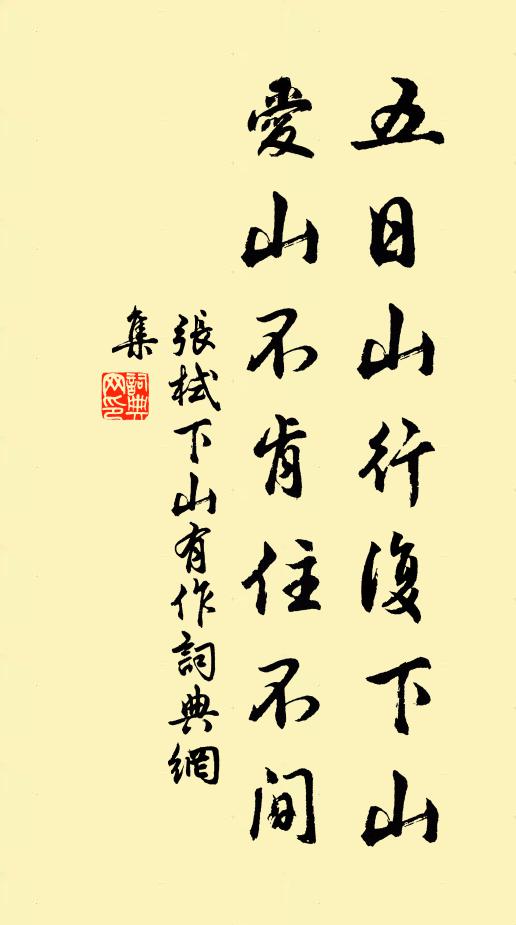 五日山行復下山
愛山不肯住不间
張栻下山有作詞典網
集
詞典
网印